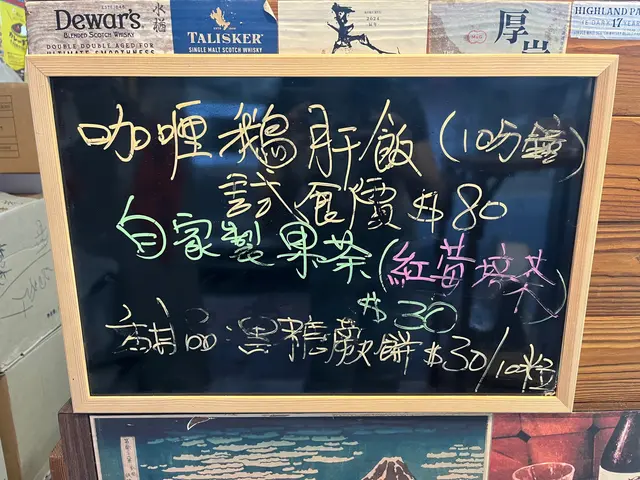 Dewar's
BLENDED SCOTCH WHISKY
DOUBLE DOUBLE AGED FOR
ULTIMATE SMOOTHNESS
TALISKER
SINGLE MALT SCOTCH WHISKY
厚岸
HIGHLAND PA
17
咖喱鵝肝飯(10分鐘)
試食價 $80
自家製果茶(紅莓焙茶)
$30
甜品:黑糖蕨餅 $30/10粒